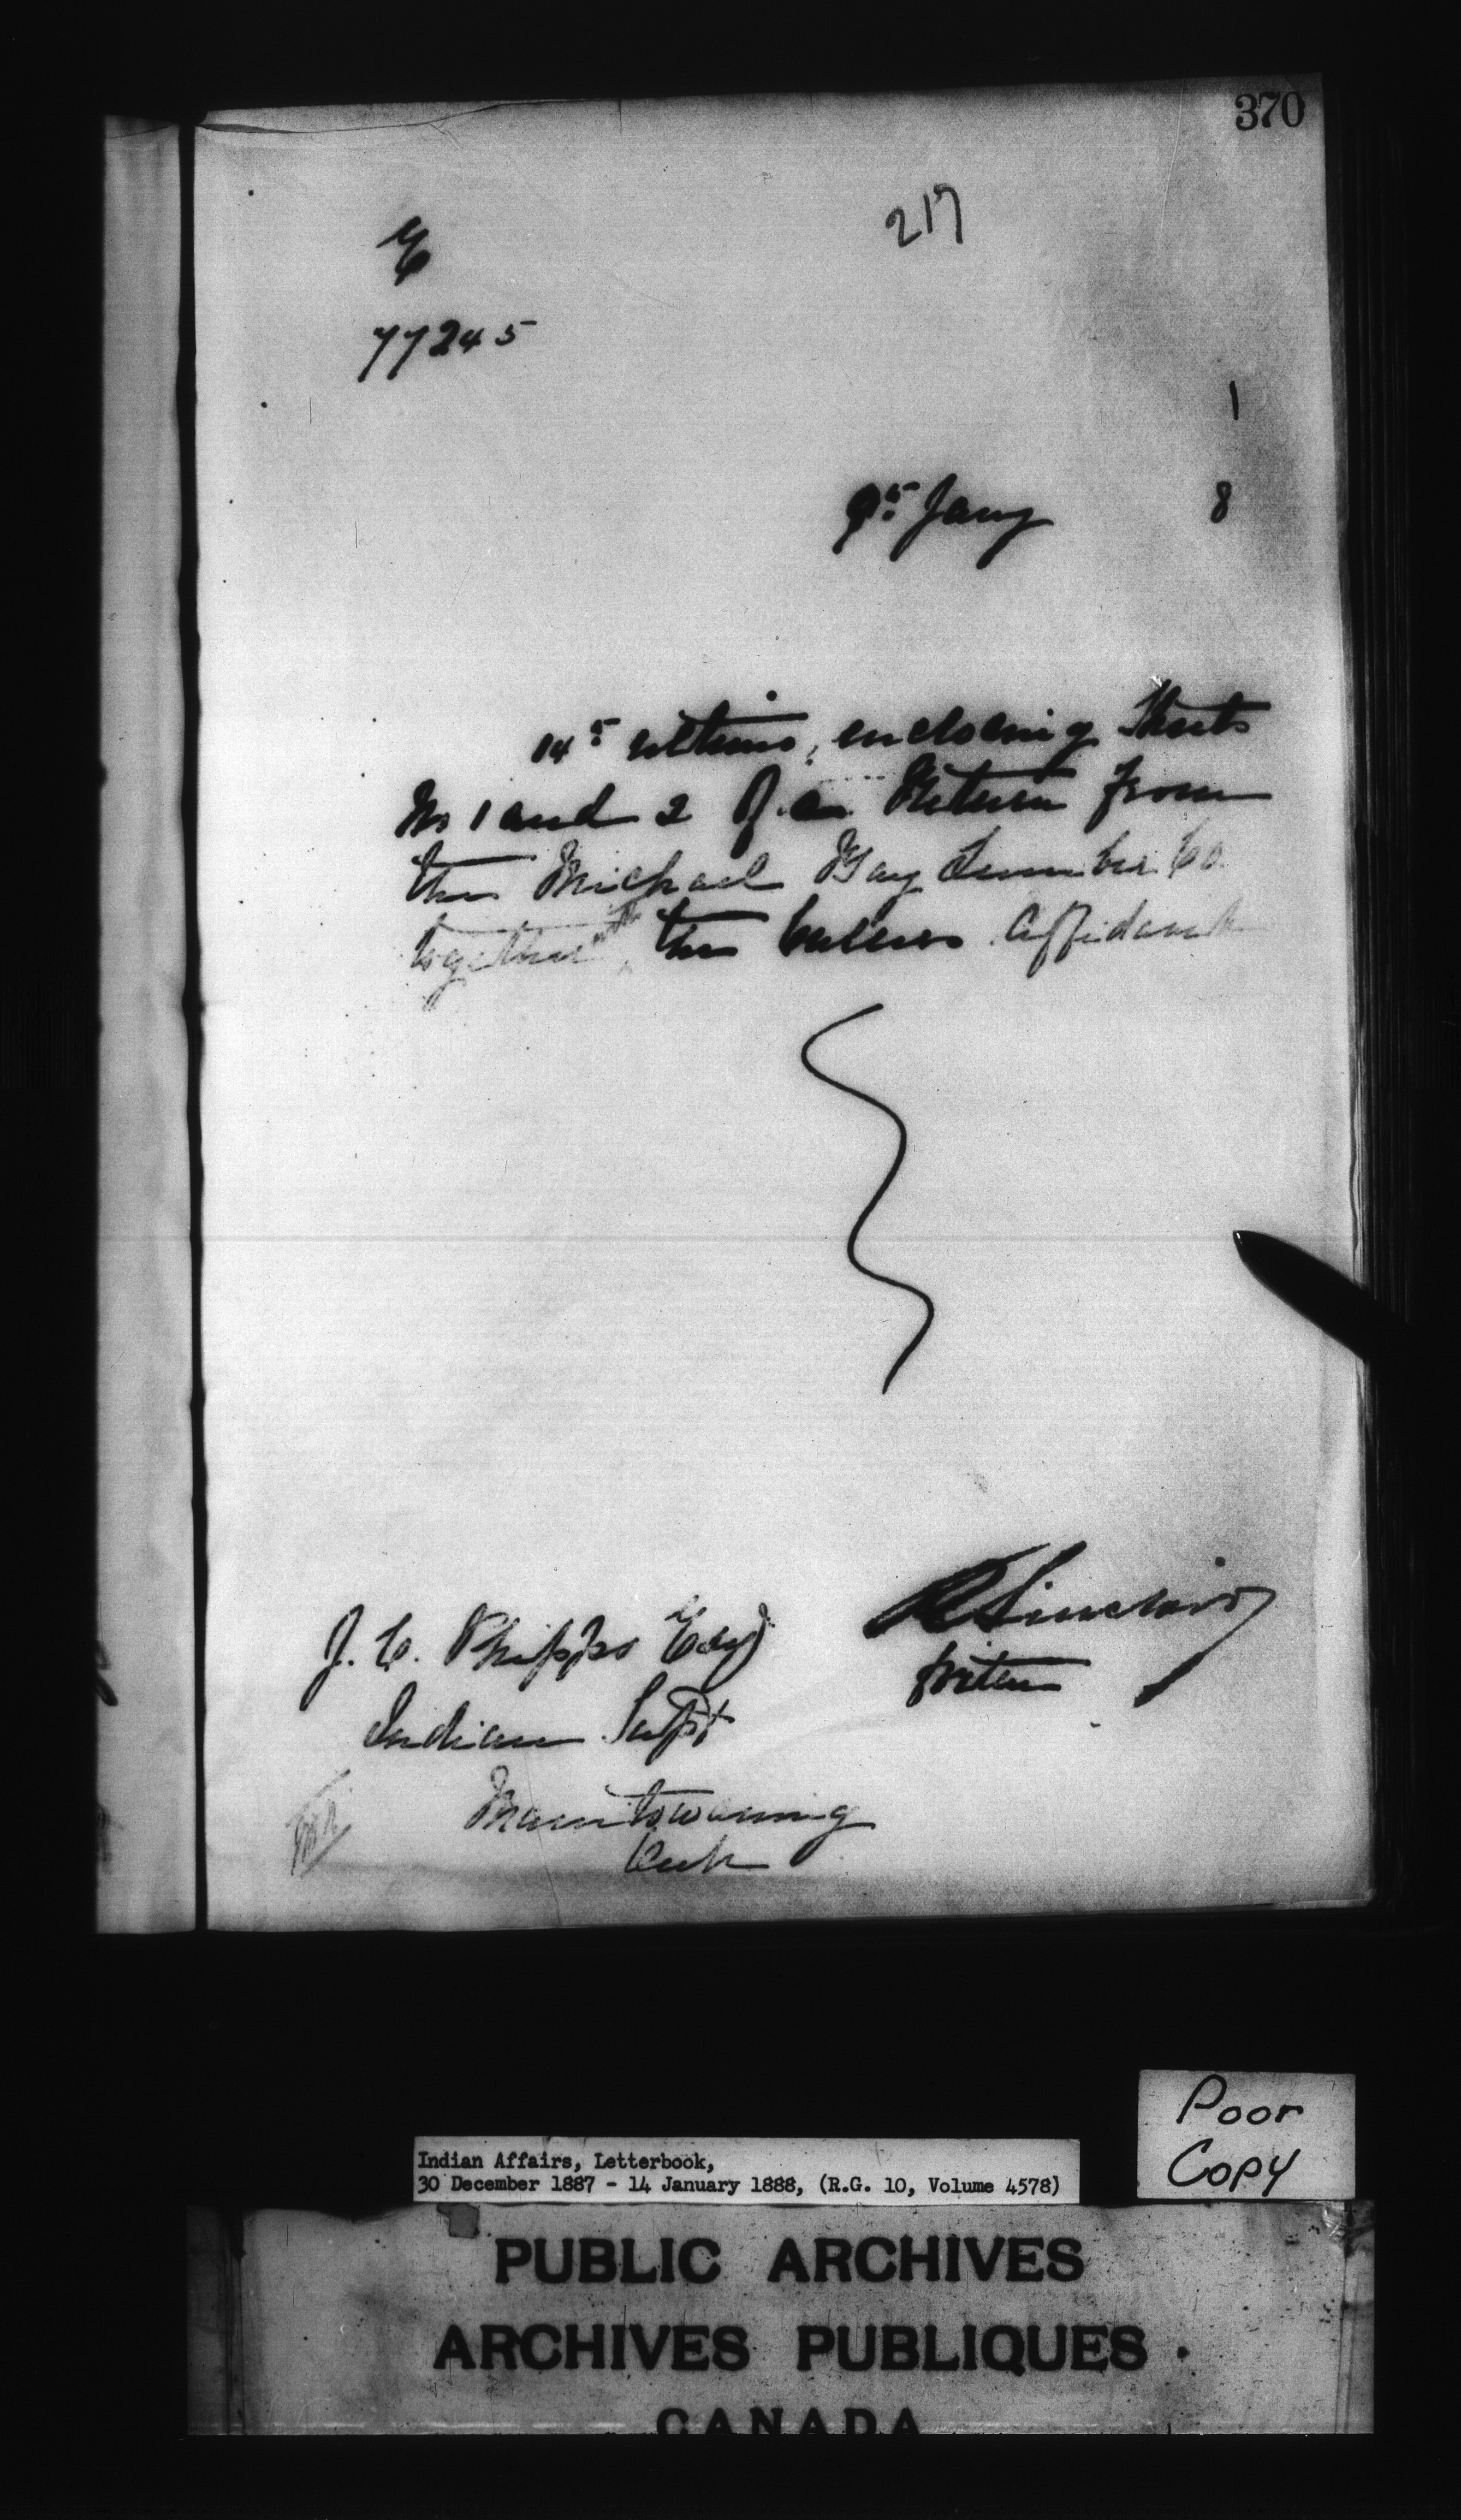 370
217
E
77245
1
9th Jany 8
14th ultimo, enclosing Sheets
No 1 and 2 of a Return from
the Michael Bay Lumber Co.
together with the Cullers Affidavit
J. C. Phipps Esq
Indian Supt
Manitowaning
Ont
R Sinclair
for
Poor
Copy
Indian Affairs, Letterbook,
30 December 1887 - 14 January 1888, (R.G. 10, Volume 4578)
PUBLIC ARCHIVES
ARCHIVES PUBLIQUES
CANADA